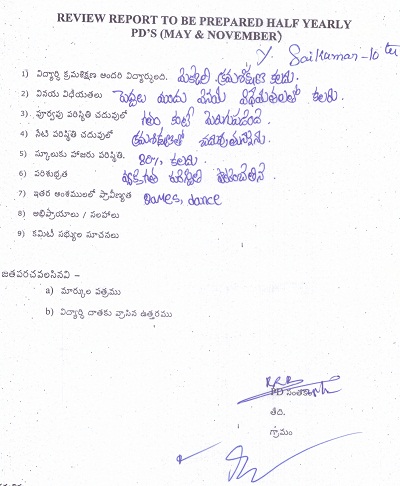 REVIEW REPORT TO BE PREPARED HALF YEARLY
PD'S (MAY & NOVEMBER)
Y. Saikumar-10th
1) విద్యార్థి క్రమశిక్షణ అందరి విద్యార్థులది. క్రమశిక్షణ కలదు.
2) వినయ విధేయతలు పెద్దల ముందు వినయ విధేయతలతో కలరు.
3) పూర్వపు పరిస్థితి చదువులో గతం కంటే మెరుగుపడింది.
4) నేటి పరిస్థితి చదువులో క్రమశిక్షణతో చదువుతున్నాడు.
5) స్కూలుకు హాజరు పరిస్థితి. 80% కలదు.
6) పరిశుభ్రత వ్యక్తిగత
7) ఇతర అంశములలో ప్రావీణ్యత Games, dance
8) అభిప్రాయాలు / సలహాలు
9) కమిటీ సభ్యుల సూచనలు
జతపరచవలసినవి –
a) మార్కుల పత్రము
b) విద్యార్థి దాతకు వ్రాసిన ఉత్తరము
PD సంతకం
తేది.
గ్రామం